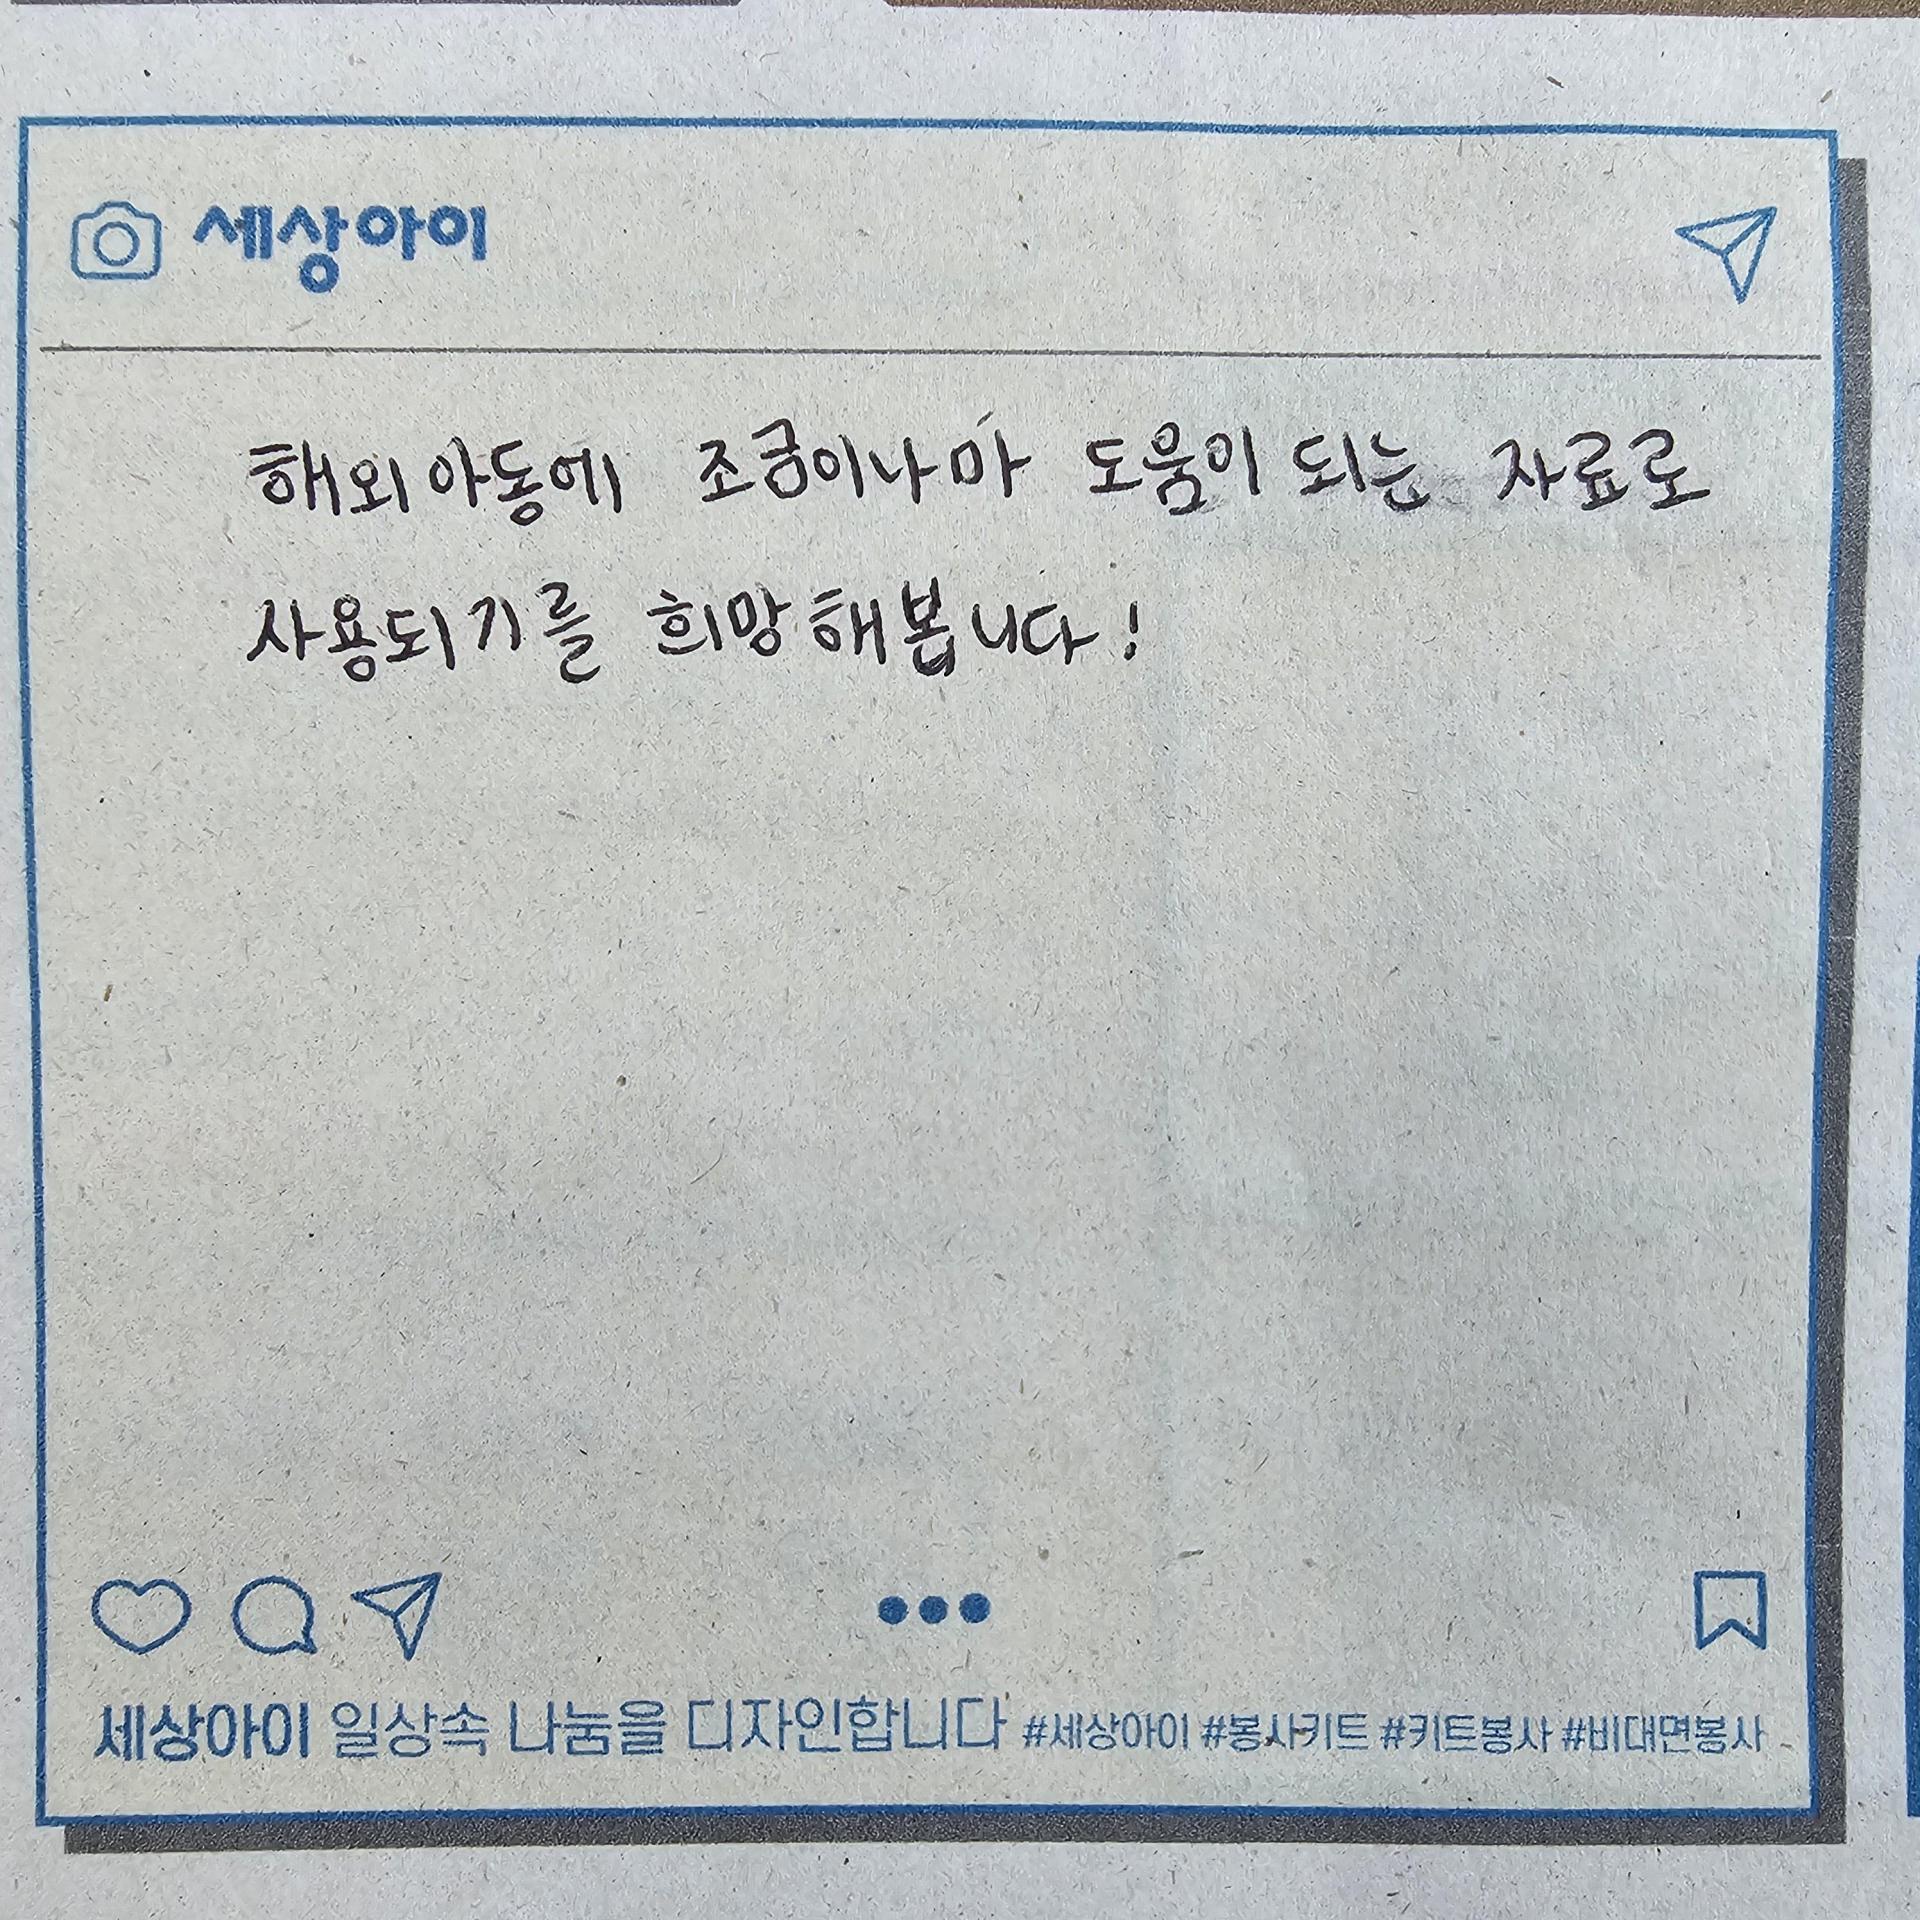 세상아이
해외아동에 조금이나마 도움이 되는 자료로
사용되기를 희망해봅니다!
세상아이 일상속 나눔을 디자인합니다 #세상아이 #봉사키트 #키트봉사 #비대면봉사